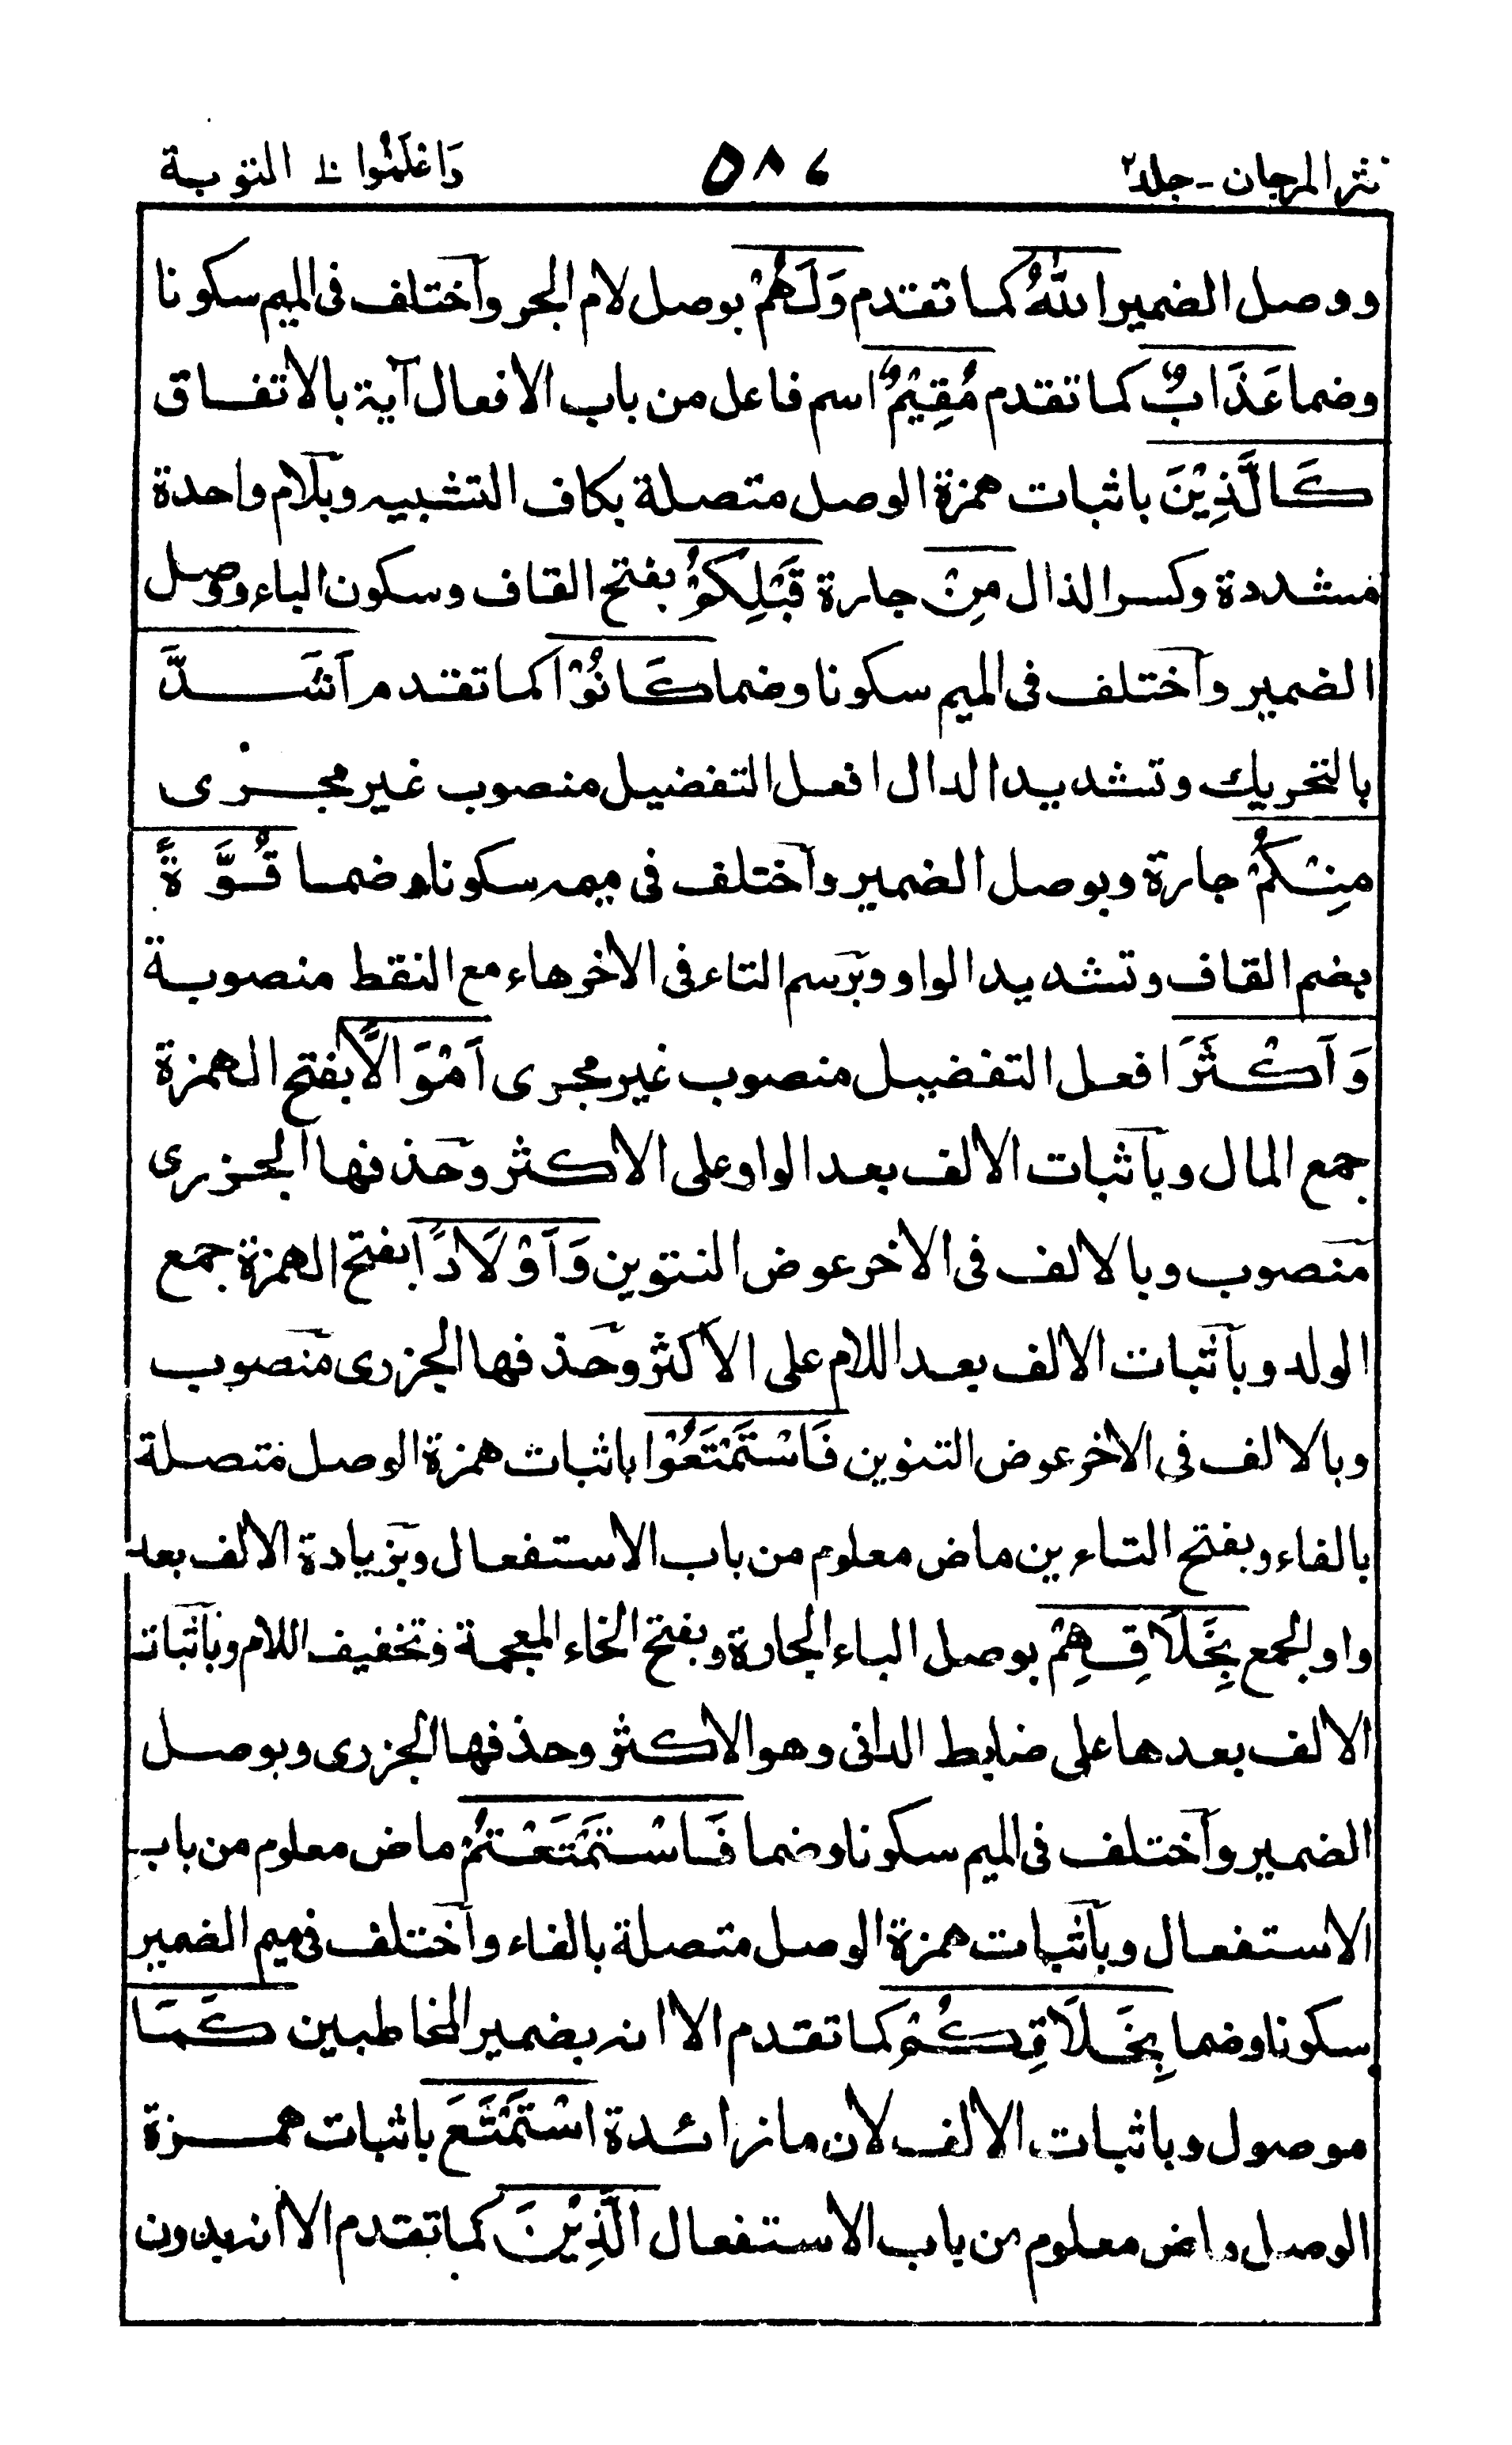 نثر المرجان - جلد ٢ ٥٨٤ وَاعْلَمُوا ١٠ التوبة
ووصل الضمير اللّٰهُ كما تقدم وَلَهُمْ بوصل لام الجر وآختلف فى الميم سكونا
وضما عَذَابٌ كما تقدم مُقِيْمٌ اسم فاعل من باب الافعال آية بالاتفاق
كَالَّذِيْنَ باثبات همزة الوصل متصلة بكاف التشبيه وبلام واحدة
مشددة وكسر الذال مِنْ جارة قَبْلِكُمْ بفتح القاف وسكون الباء ووصل
الضمير وآختلف فى الميم سكونا وضما كَانُوْا كما تقدم اَشَدَّ
بالتحريك وتشديد الدال افعل التفضيل منصوب غير مجرى
مِنْكُمْ جارة وبوصل الضمير وآختلف فى ميمه سكونا وضما قُوَّةً
بضم القاف وتشديد الواو وبرسم التاء فى الاخر هاء مع النقط منصوبة
وَاَكْثَرَ افعل التفضيل منصوب غير مجرى اَمْوَالًا بفتح الهمزة
جمع المال وبآثبات الالف بعد الواو على الاكثر وحذفها الجزرى
منصوب وبالالف فى الاخر عوض التنوين وَاَوْلَادًا بفتح الهمزة جمع
الولد وبآثبات الالف بعد اللام على الاكثر وحذفها الجزرى منصوب
وبالالف فى الاخر عوض التنوين فَاسْتَمْتَعُوْا باثبات همزة الوصل متصلة
بالفاء وبفتح التاءين ماض معلوم من باب الاستفعال وبزيادة الالف بعد
واو الجمع بِخَلَاقِهِمْ بوصل الباء الجارة وبفتح الخاء المعجمة وتخفيف اللام وبآثبات
الالف بعدها على ضابط الدانى وهو الاكثر وحذفها الجزرى وبوصل
الضمير وآختلف فى الميم سكونا وضما فَاسْتَمْتَعْتُمْ ماض معلوم من باب
الاستفعال وبآثبات همزة الوصل متصلة بالفاء وآختلف فى ميم الضمير
سكونا وضما بِخَلَاقِكُمْ كما تقدم الا انه بضمير المخاطبين كَمَا
موصول وباثبات الالف لان ما زائدة اسْتَمْتَعَ باثبات همزة
الوصل ماض معلوم من باب الاستفعال الَّذِيْنَ كما تقدم الا انه بدون